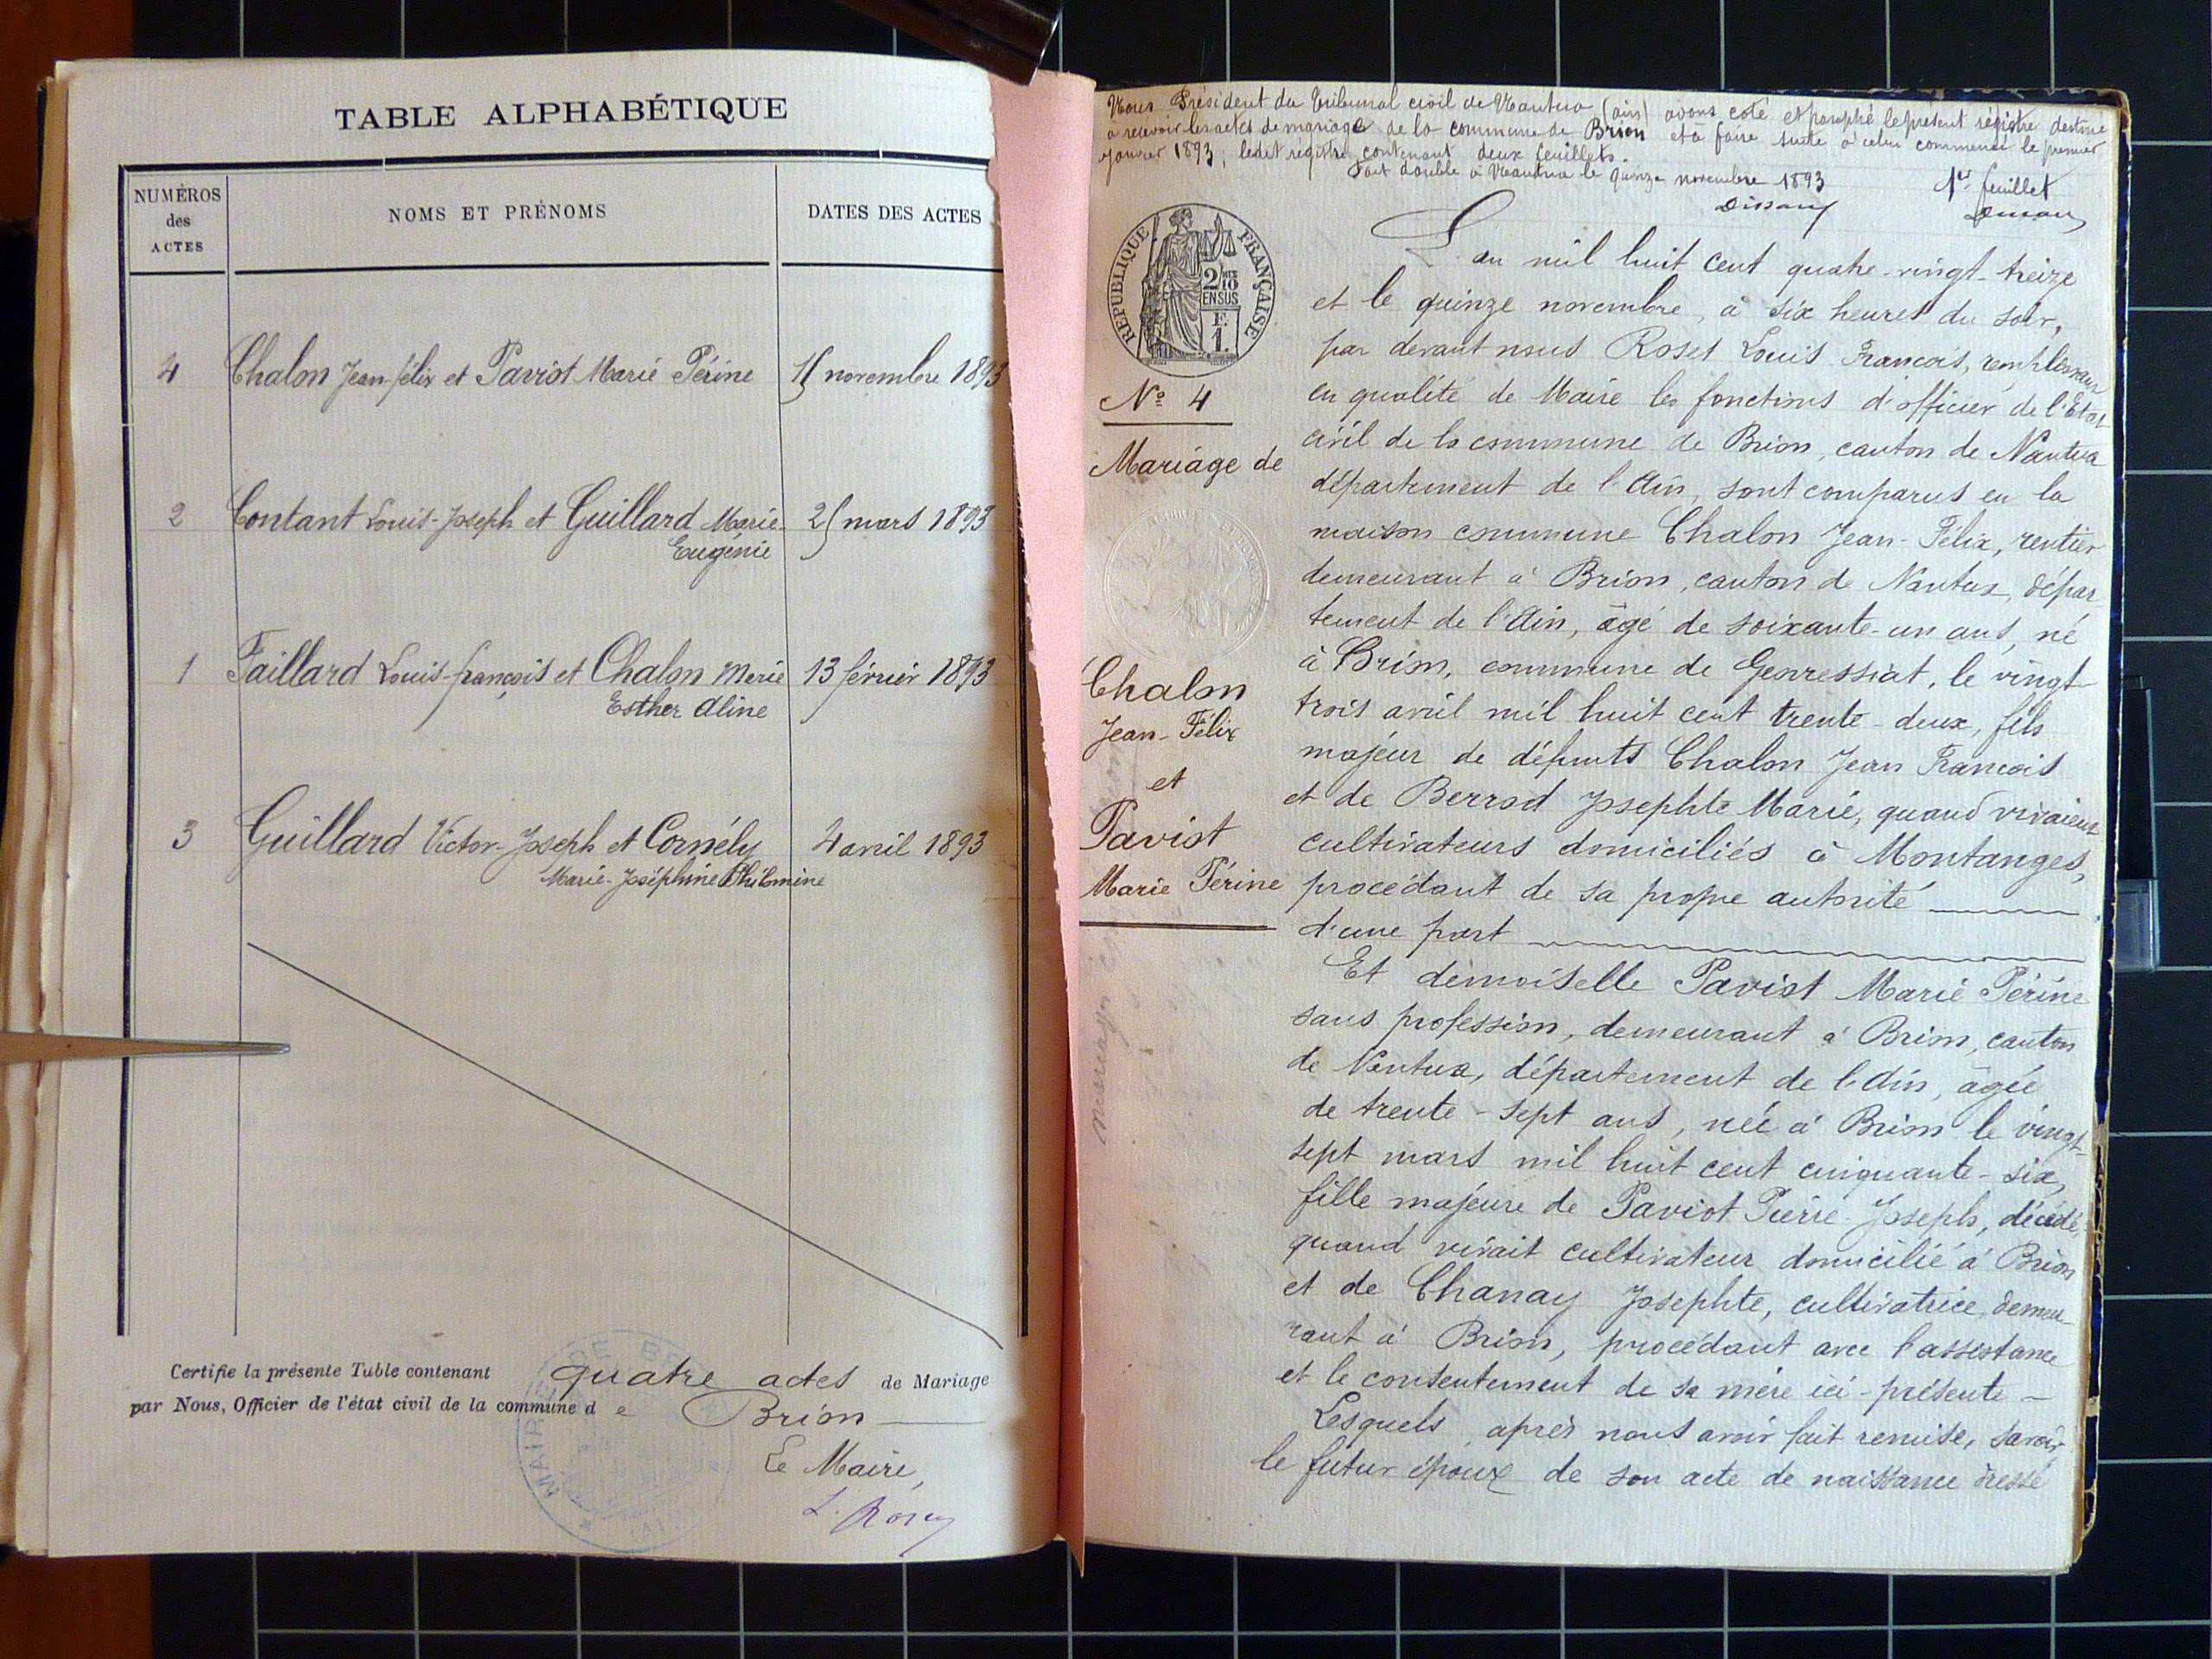 TABLE ALPHABÉTIQUE
NUMÉROS des ACTES
NOMS ET PRÉNOMS
DATES DES ACTES
4 Chalon Jean-félix et Paviot Marie Périne 15 novembre 1893
2 Contant Louis-Joseph et Guillard Marie- 25 mars 1893
Eugénie
1 Faillard Louis-françois et Chalon Marie 13 février 1893
Esther Aline
3 Guillard Victor-Joseph et Cornély 4 avril 1893
Marie-Joséphine Philomine
Certifie la présente Table contenant quatre actes de Mariage
par Nous, Officier de l'état civil de la commune d e Brion
Le Maire,
Nous Président du tribunal civil de Nantua (ain) avons coté et paraphé le présent régistre destiné
a recevoir les actes de mariage de la commune de Brion et à faire suite à celui commencé le premier
janvier 1893, ledit régistre contenant deux feuillets.
Fait double à Nantua le quinze novembre 1893
1er feuillet
RÉPUBLIQUE FRANÇAISE
2/10 EN SUS
F. 1.
N° 4
Mariage de
Chalon
Jean-Félix
et
Paviot
Marie Périne
L'an mil huit cent quatre-vingt-treize
et le quinze novembre, à six heures du soir,
par devant nous Roset Louis François, remplissant
en qualité de Maire les fonctions d'officier de l'Etat
civil de la commune de Brion, canton de Nantua
département de l'Ain, sont comparus en la
maison commune Chalon Jean-Félix, rentier
demeurant à Brion, canton de Nantua, dépar
tement de l'Ain, âgé de soixante-un ans, né
à Brion, commune de Geovressiat, le vingt-
trois avril mil huit cent trente-deux, fils
majeur de défunts Chalon Jean François
et de Berrod Josephte Marie, quand vivaient
cultivateurs domiciliés à Montanges,
procédant de sa propre autorité
d'une part
Et demoiselle Paviot Marie Périne
sans profession, demeurant à Brion, canton
de Nantua, département de l'Ain, âgée
de trente-sept ans, née à Brion le vingt-
sept mars mil huit cent cinquante-six,
fille majeure de Paviot Pierre-Joseph, décédé,
quand vivait cultivateur domicilié à Brion
et de Chanay Josephte, cultivatrice demeu-
rant à Brion, procédant avec l'assistance
et le consentement de sa mère ici-présente
Lesquels, après nous avoir fait remise, savoir
le futur époux de son acte de naissance dressé